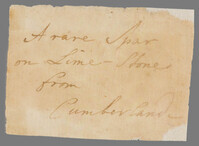 A rare Spar
on Lime-Stone
from
Cumberland